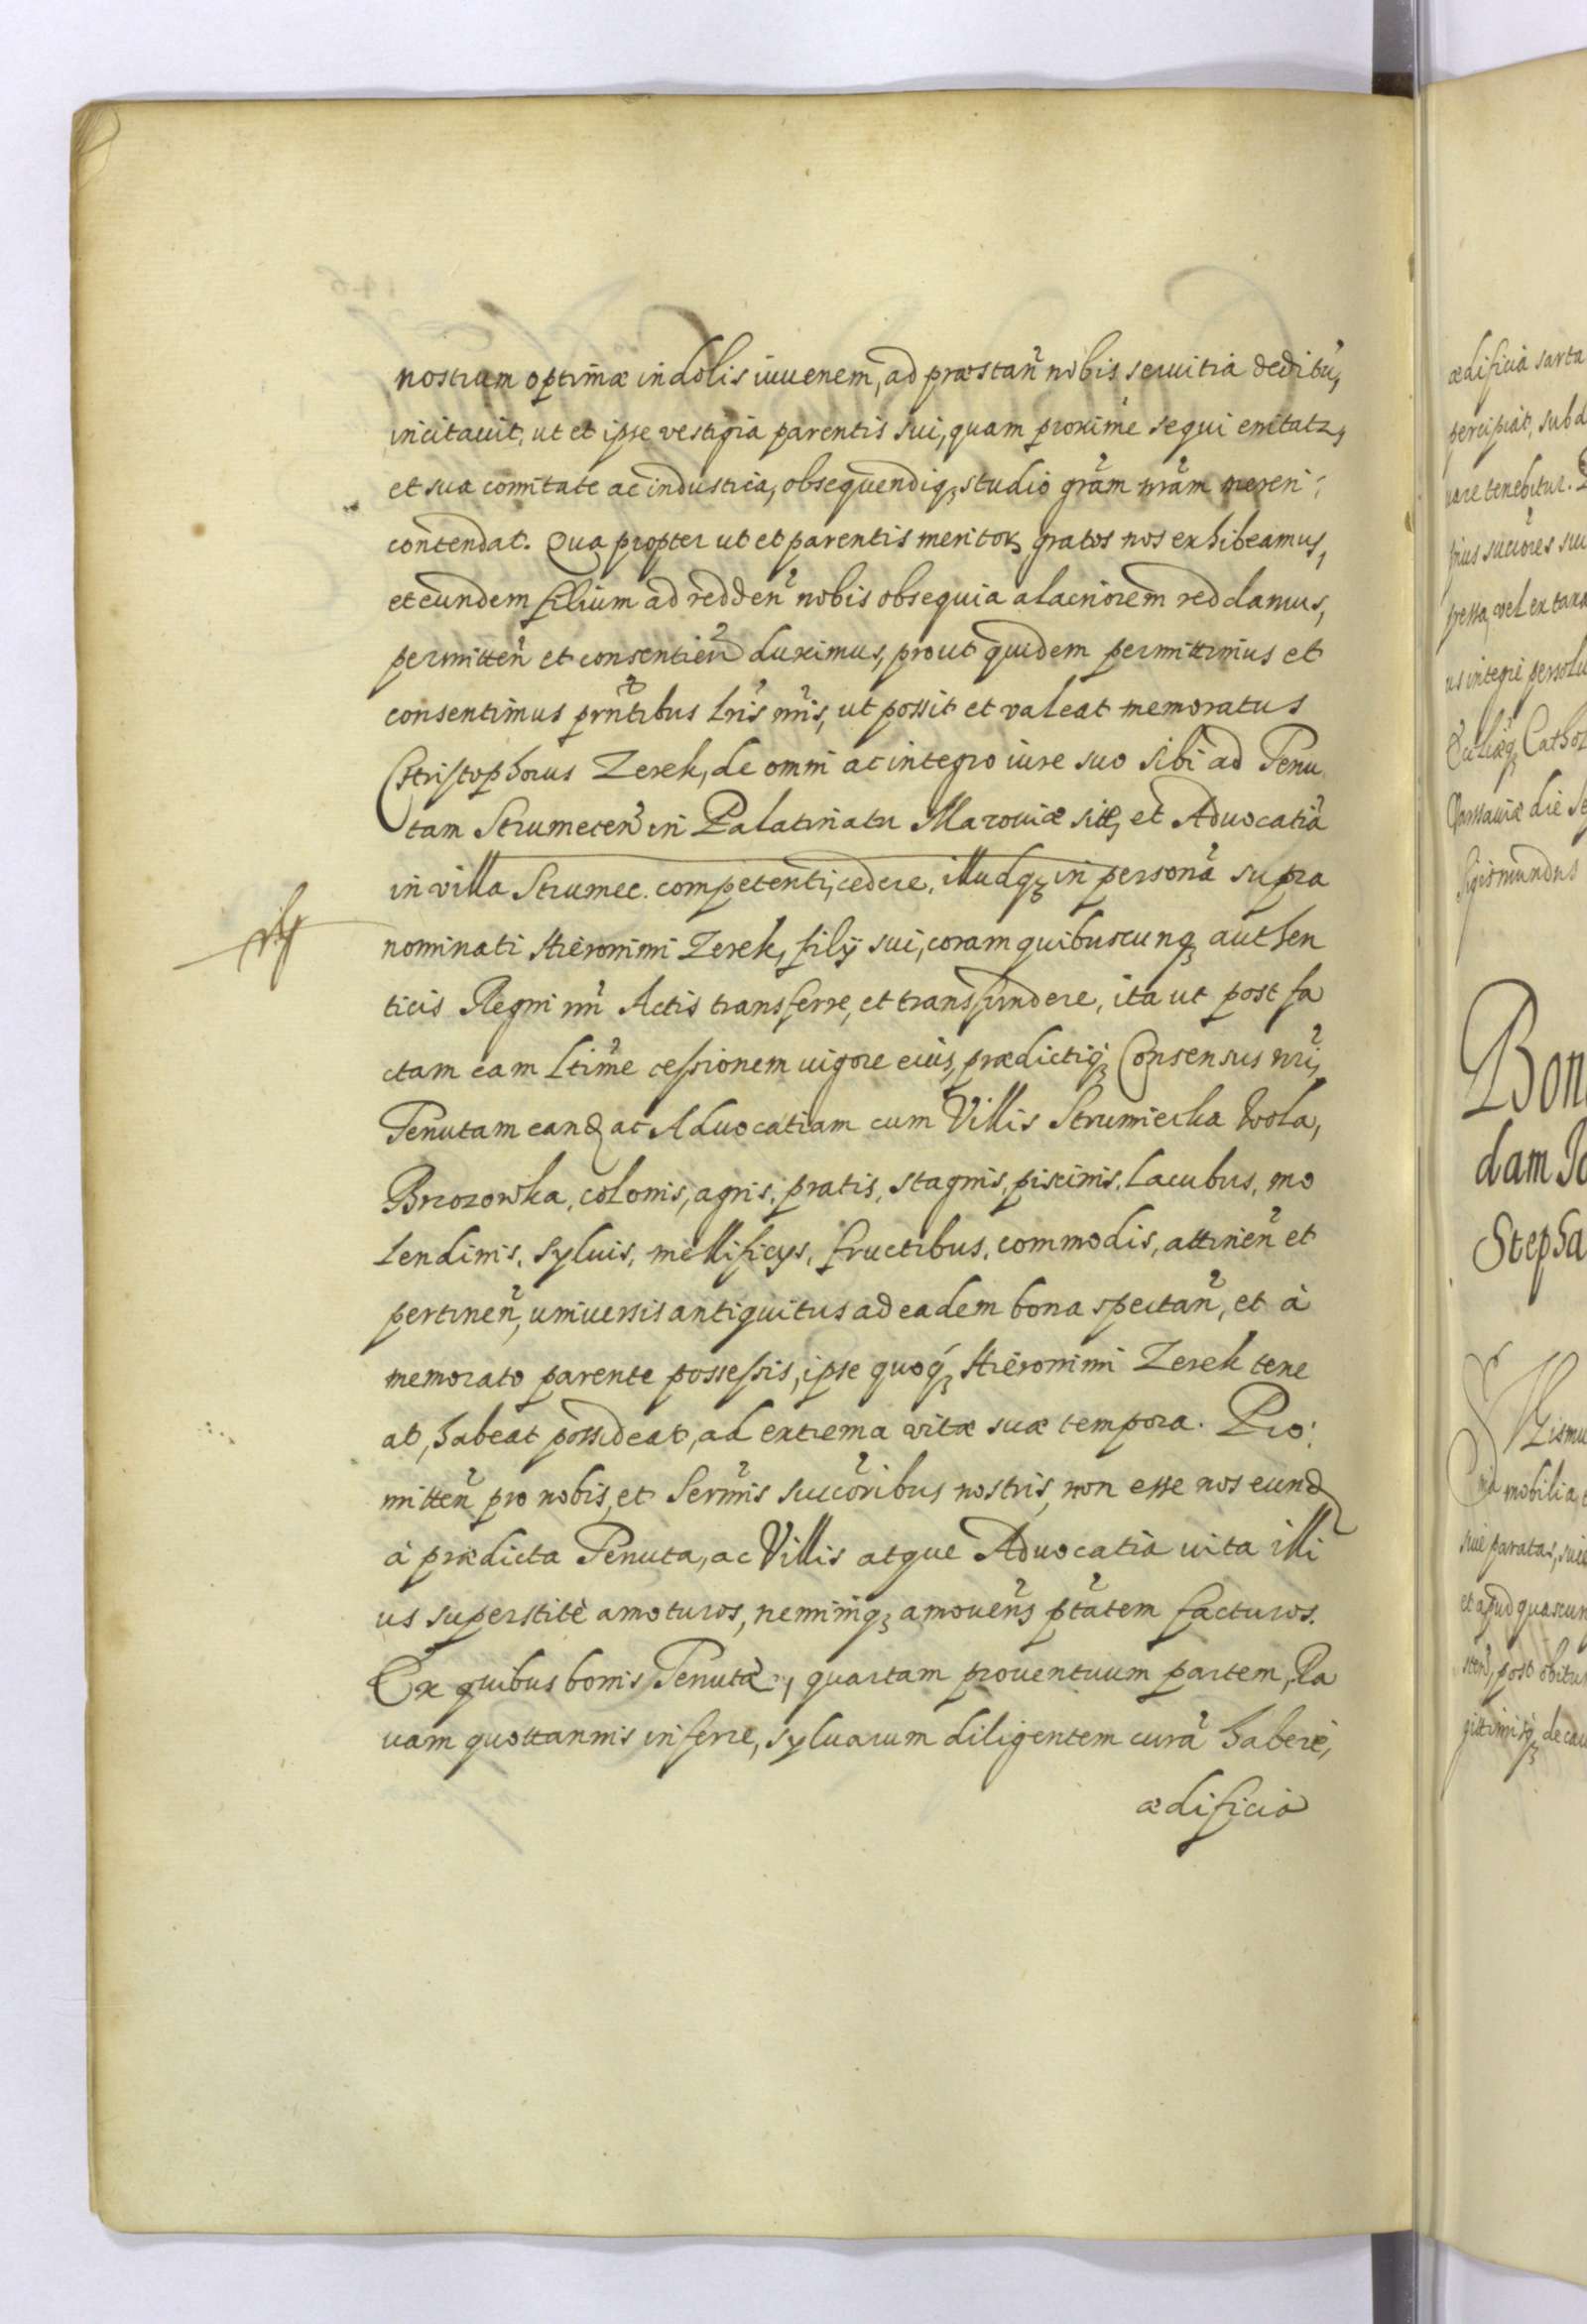 nostrum optimæ indolis iuuenem, ad præstan̄ nobis seruitia deditū,
incitauit, ut et ipse vestigia parentis sui, quam proxime sequi enitatz,
et sua comitate ac industria, obsequendiq; studio grām nrām mereri
contendat. Qua propter ut et parentis meritor gratos nos exhibeamus,
et eundem filium ad redden̄ nobis obsequia alacriorem reddamus,
permitten̄ et consentien̄ duximus, prout quidem permittimus et
consentimus prn̄tibus lrīs nrīs, ut possit et valeat memoratus
Christophorus Zerek, de omni ac integro iure suo sibi ad Tenu
tam Strumecen̄ in Palatinatu Mazouiæ sitæ, et Aduocatiā
in villa Strumec. competenti, cedere, illudq; in personā supra
nominati Hieronimi Zerek, filij sui, coram quibuscunq; authen
ticis Regni nrī Actis transferre, et transfundere, ita ut post fa
ctam eam ltīme cessionem uigore eius, prædictiq; Consensus nrī,
Tenutam eand ac Aduocatiam cum Villis Strumiecka Wola,
Brzozowka, colonis, agris, pratis, stagnis, piscinis, Lacubus, mo
lendinis, syluis, mellificijs, fructibus, commodis, attinen̄ et
pertinen̄, uniuersis antiquitus ad eadem bona spectan̄, et à
memorato parente possessis, ipse quoq; Hieronimi Zerek tene
at, habeat possideat, ad extrema vitæ suæ tempora. Pro:
mitten̄ pro nobis, et Sermīs succōribus nostris, non esse nos eund
à prædicta Tenuta, ac Villis atque Aduocatia uita illi
us superstite amoturos, neminiq; amouen̄s ptātem facturos.
Ex quibus bonis Tenutæ, quartam prouentuum partem, Ra
uam quottannis inferre, syluarum diligentem curā habere,
ædificia
ædificia sarta
percipiat, sub d
uare tenebitur.
prius succōres suo
pressa, vel ex taxa
us integre persolu
Cathol
Varsauiæ die Se
Sigismundus
Bon
dam Jo
Stepha
mobilia,
suæ paratas, suis
et apud quascun
post obitum
de cau